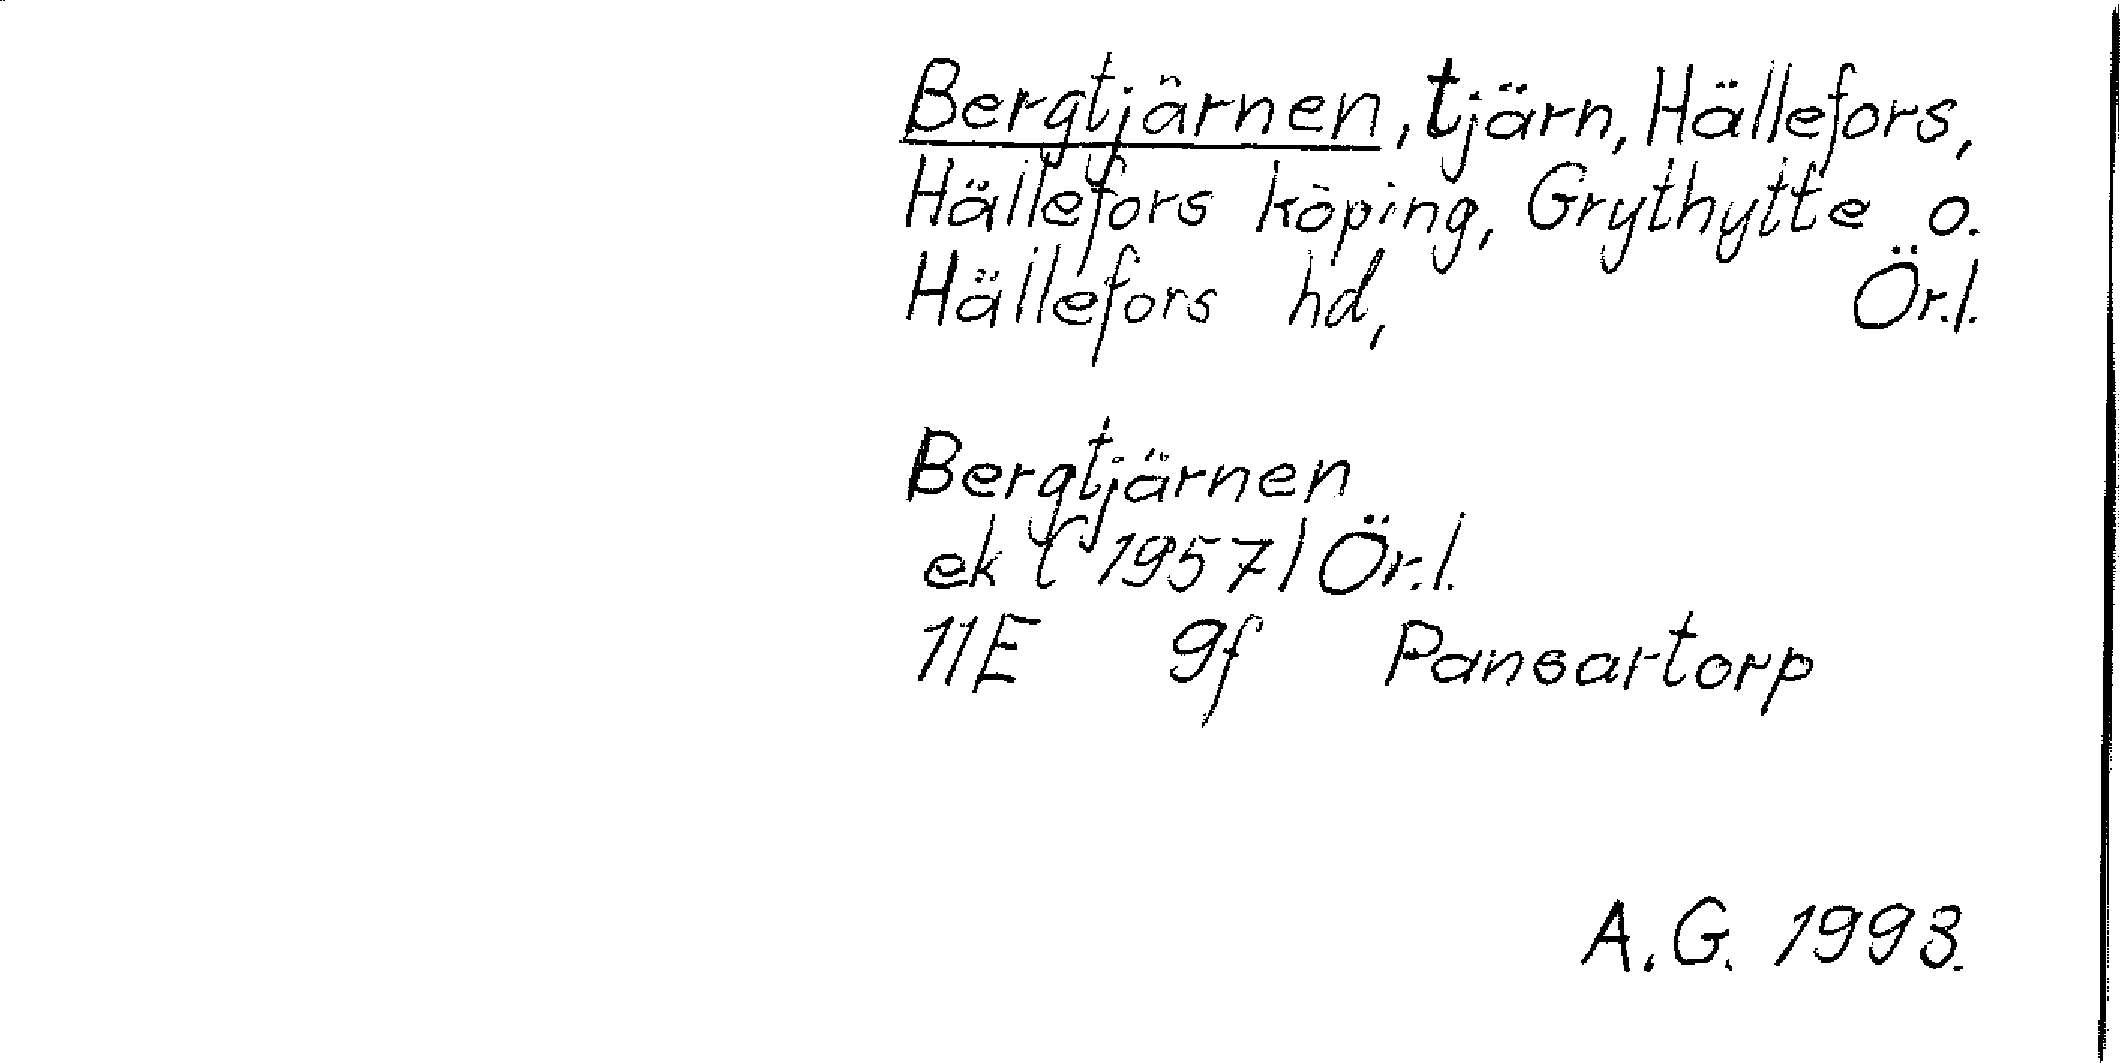 Bergtjärnen, tjärn, Hällefors,
Hällefors köping, Grythytte o.
Hällefors hd, Ör.l.
Bergtjärnen
ek (1957) Ör.l.
11E 9f Pansartorp
A.G. 1993.